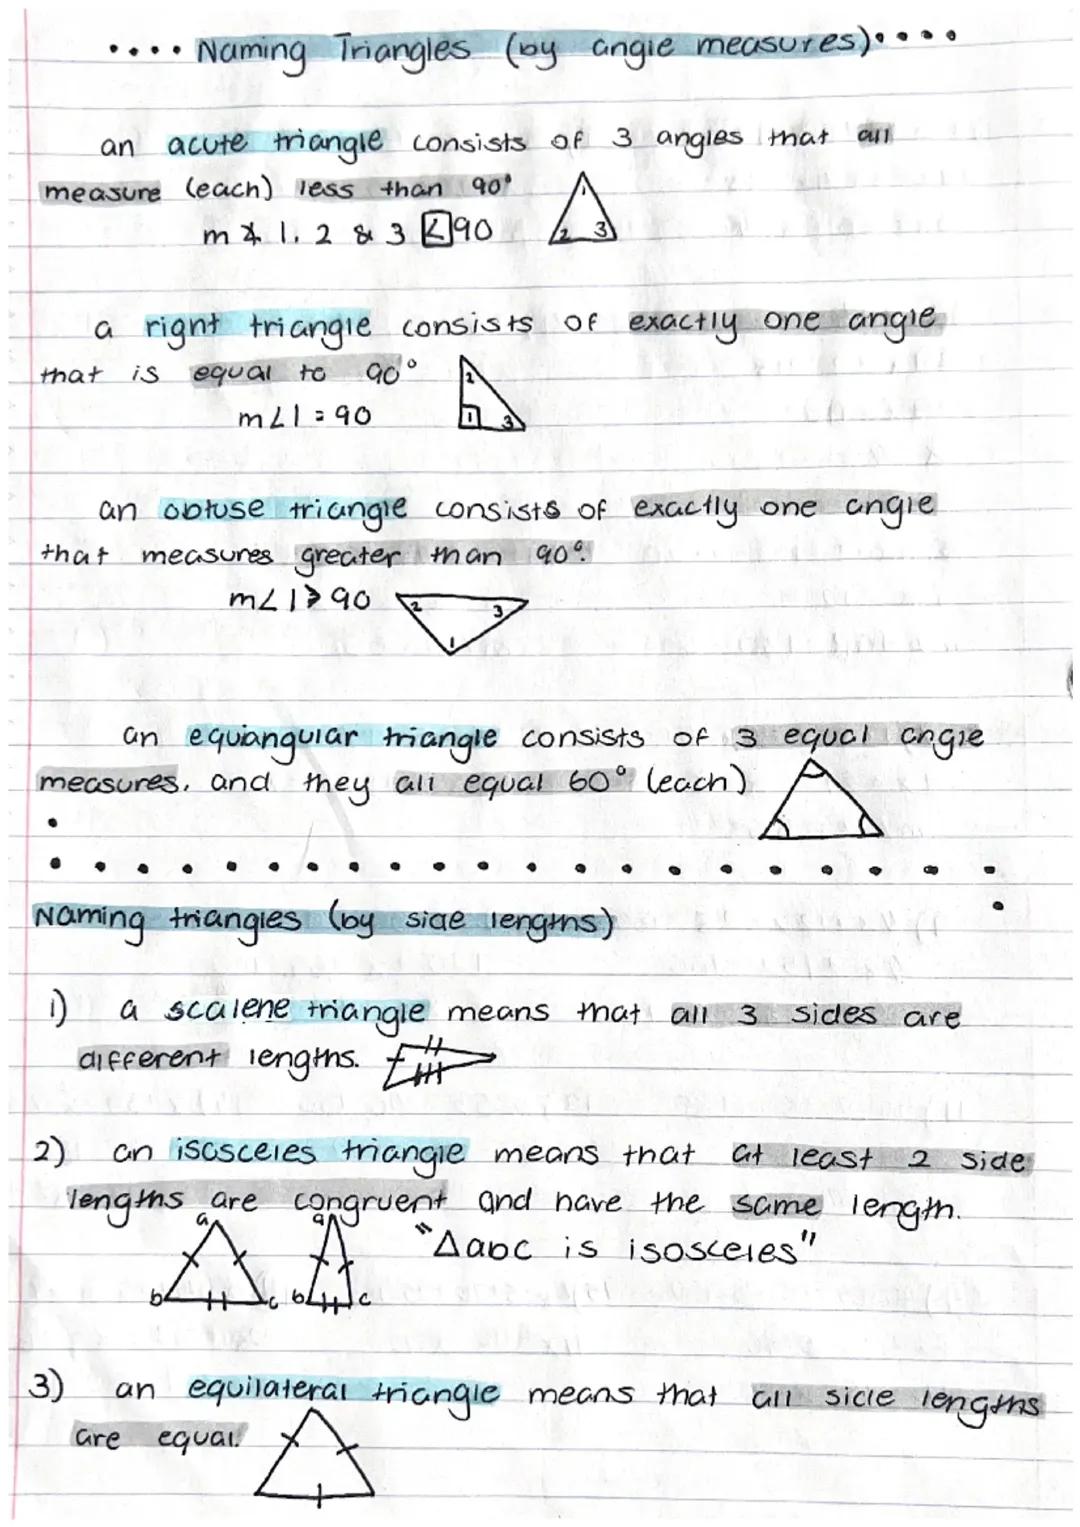 Naming Triangles (by angle measures)
an acute triangle consists of 3 angles that all
measure (each) less than 90°
m∡ 1, 2 & 3 < 90
1
2 3
a right triangle consists of exactly one angle
that is equal to 90°
m∠1 = 90
2
1 3
an obtuse triangle consists of exactly one angle
that measures greater than 90°.
m∠1 > 90
2 3
1
an equiangular triangle consists of 3 equal angle
measures, and they all equal 60° (each)
Naming triangles (by side lengths)
1) a scalene triangle means that all 3 sides are
different lengths.
2) an isosceles triangle means that at least 2 side
lengths are congruent and have the same length.
a a
"△abc is isosceles"
b c b c
3) an equilateral triangle means that all side lengths
are equal.